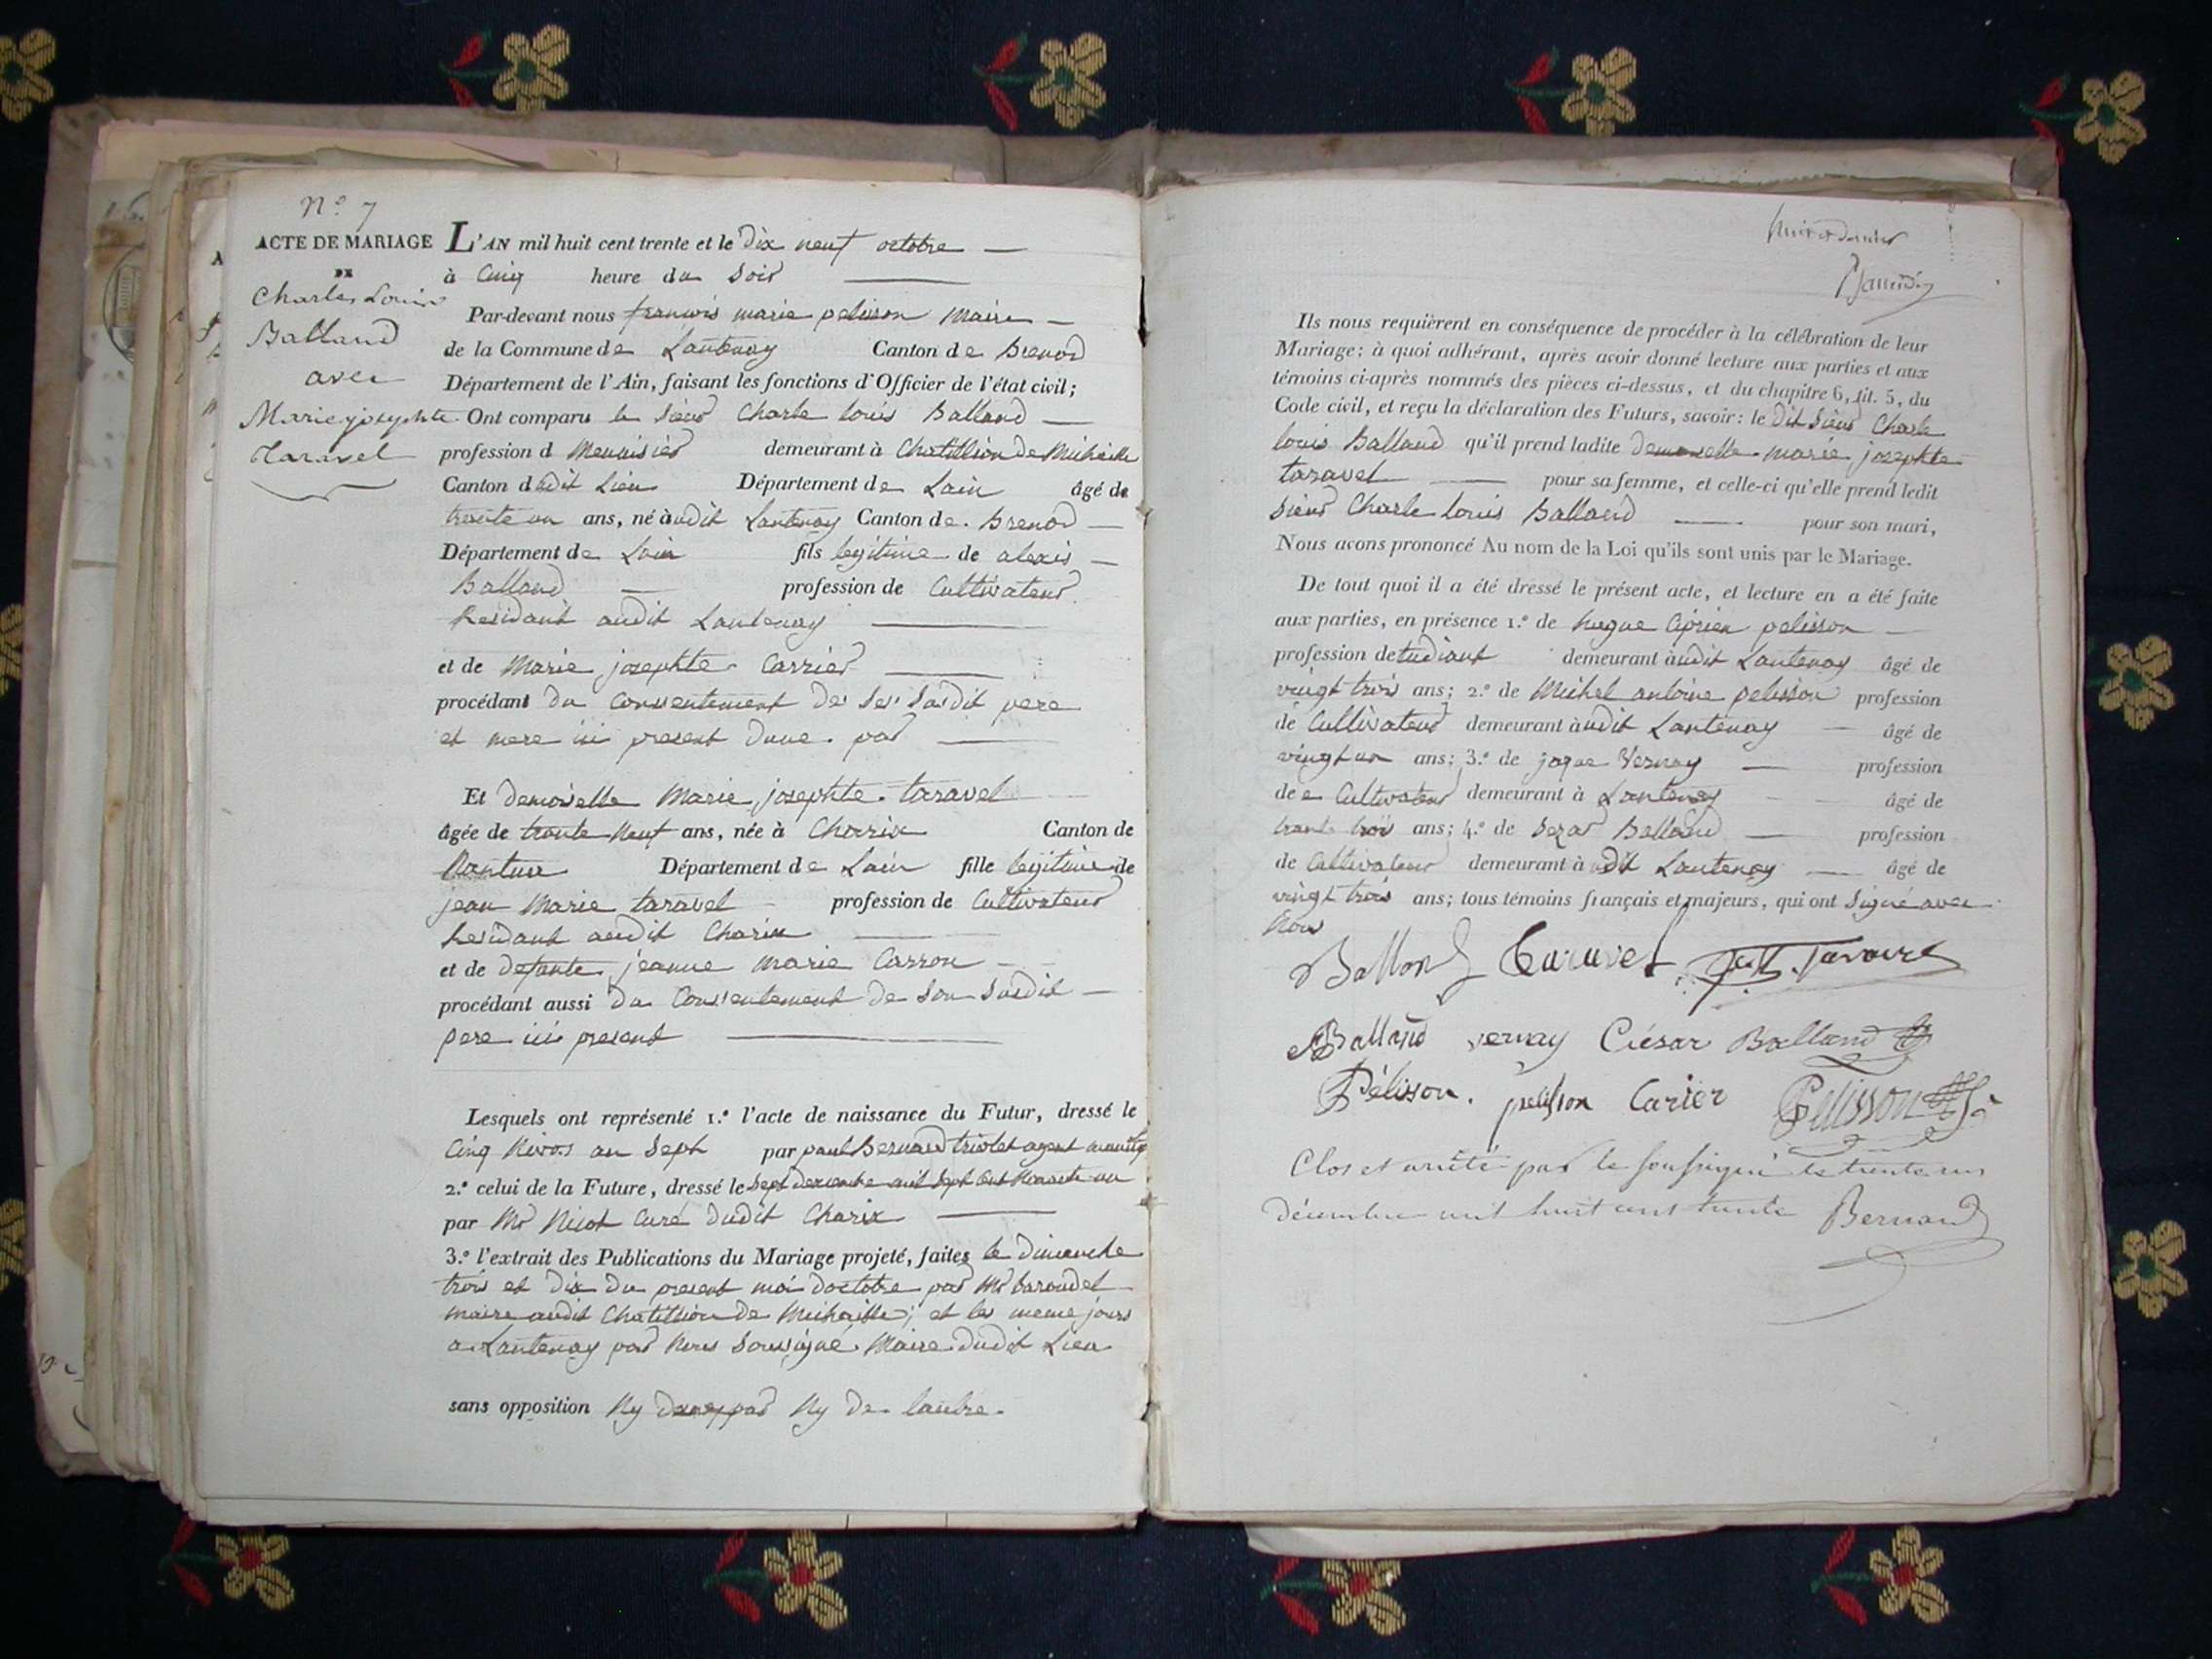 N.º 7
ACTE DE MARIAGE
DE
Charles Louis
Balland
avec
Marie josephte
Taravel
L'AN mil huit cent trente et le Dix neuf octobre
à Cinq heure du Soir
Par-devant nous francois marie pelisson Maire
de la Commune de Lantenay Canton de Brenod
Département de l'Ain, faisant les fonctions d'Officier de l'état civil;
Ont comparu le Sieur Charle louis Balland
profession d Menuisier demeurant à Chatillion De Michaille
Canton dudit Lieu Département de Lain âgé de
trente un ans, né audit Lantenay Canton de Brenod
Département de Lain fils legitime de alexis
Balland profession de Cultivateur
Residant audit Lantenay
et de Marie josephte Carrier
procédant du Consentement de Ses Susdit pere
et mere ici present Dune par
Et demoiselle Marie josephte taravel
âgée de trente Neuf ans, née à Charix Canton de
Nantua Département de Lain fille legitime de
jean Marie taravel profession de Cultivateur
Residant audit Charix
et de defunte jeanne marie Carron
procédant aussi du Consentement de Son Susdit
pere ici present
Lesquels ont représenté 1.º l'acte de naissance du Futur, dressé le
Cinq Nivos an Sept par paul Bernard triolet agent
2.º celui de la Future, dressé le Sept mil Sept Cent Nonante un
par Mr Nicot Curé dudit Charix
3.º l'extrait des Publications du Mariage projeté, faites le dimanche
trois et dix du present moi doctobre par Mr baroudel
maire audit Chatillion De Michaille; et les meme jours
a Lantenay par Nous Soussigné Maire dudit Lieu
sans opposition Ny dune par Ny De lautre
huit et dernier
Ils nous requièrent en conséquence de procéder à la célébration de leur
Mariage; à quoi adhérant, après avoir donné lecture aux parties et aux
témoins ci-après nommés des pièces ci-dessus, et du chapitre 6, tit. 5, du
Code civil, et reçu la déclaration des Futurs, savoir: le dit Sieur Charle
louis Balland qu'il prend ladite demoiselle marie josephte
taravel pour sa femme, et celle-ci qu'elle prend ledit
Sieur Charle louis Balland pour son mari,
Nous avons prononcé Au nom de la Loi qu'ils sont unis par le Mariage.
De tout quoi il a été dressé le présent acte, et lecture en a été faite
aux parties, en présence 1.º de hugue Ciprien pelisson
profession detudiant demeurant audit Lantenay âgé de
vingt trois ans; 2.º de Michel antoine pelisson profession
de Cultivateur demeurant audit Lantenay âgé de
vingt un ans; 3.º de jaque Vernay profession
de Cultivateur demeurant à Lantenay âgé de
trante trois ans; 4.º de Sezar Balland profession
de Cultivateur demeurant à udit Lantenay âgé de
vingt trois ans; tous témoins français et majeurs, qui ont Signé avec
Nous
Balland Taravel
Balland vernay César Balland
Pélisson. pelisson Carier Pelisson
Clos et arrêté par le soussigné le trente un
décembre mil huit cent trente Bernard